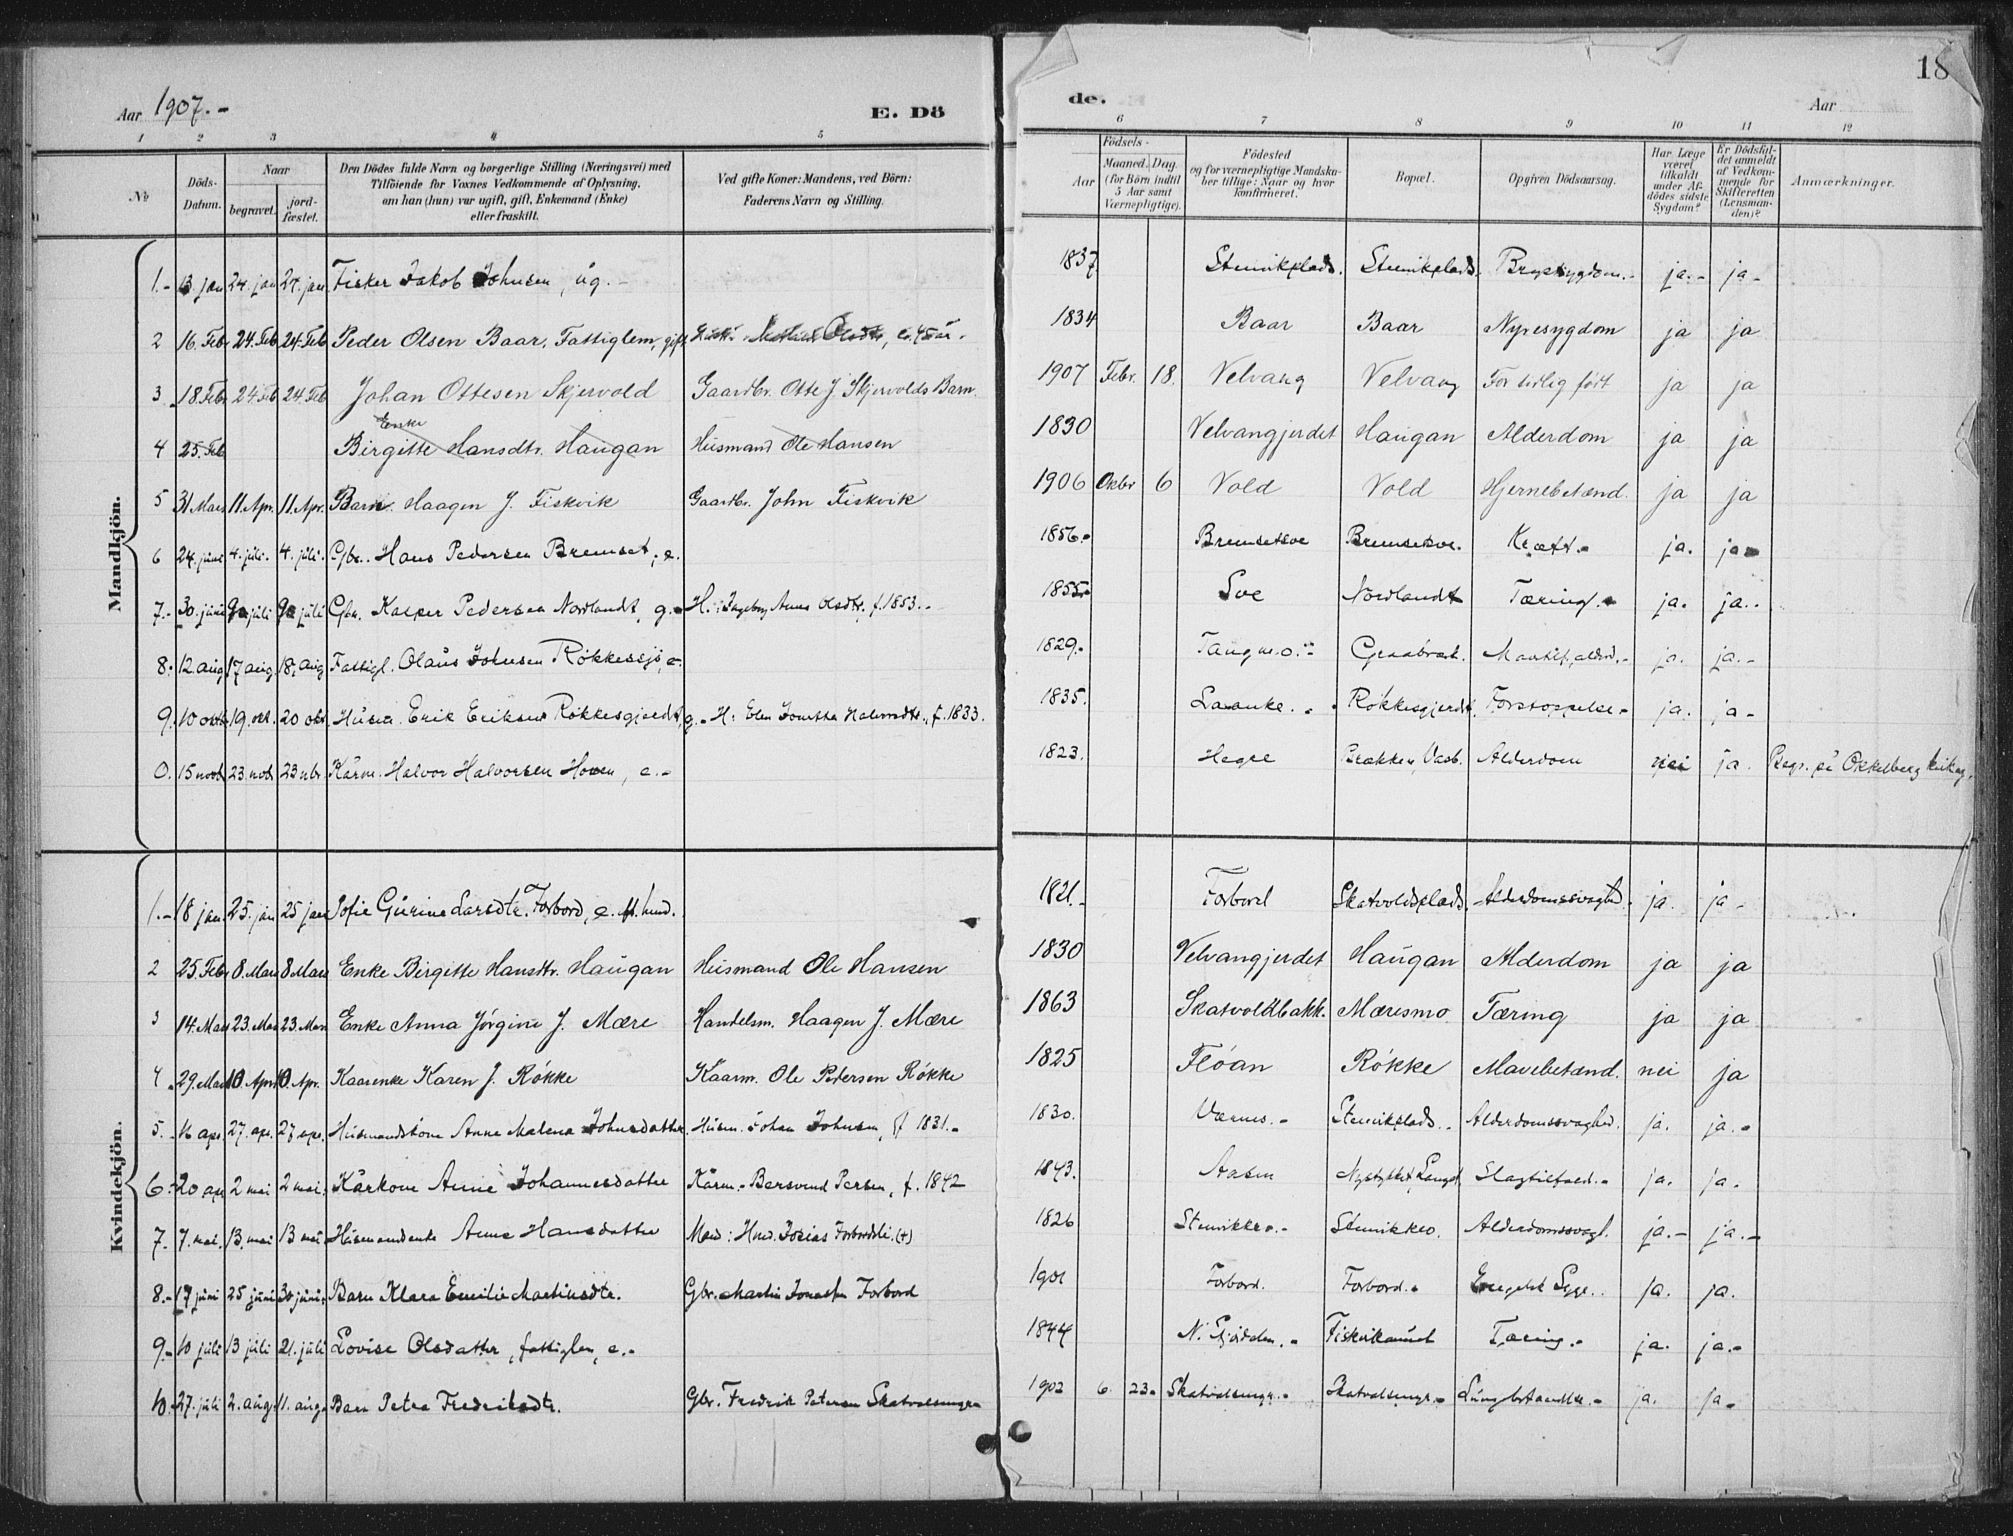 Aar 1907.-
E. Dö
de.
Aar
18
1 2 3 4 5
6 7 8 9 10 11 12
№
Döds-Datum.
Naar
begravet.
jord-fæstet.
Den Dödes fulde Navn og borgerlige Stilling (Næringsvei) med
Tilföiende for Voxnes Vedkommende af Oplysning,
om han (hun) var ugift, gift, Enkemand (Enke)
eller fraskilt.
Ved gifte Koner: Mandens, ved Börn:
Faderens Navn og Stilling.
Födsels-
Aar
Maaned. Dag.
(for Börn indtil
5 Aar samt
Værnepligtige).
Födested
og for værnepligtige Mandska-
ber tillige: Naar og hvor
konfirmeret.
Bopæl.
Opgiven Dödsaarsag.
Har Læge
været
tilkaldt
under Af-
dödes sidste
Sygdom?
Er Dödsfal-
det anmeldt
af Vedkom-
mende for
Skifteretten
(Lensman-
den)?
Anmærkninger.
Mandkjön.
1.- 13 jan 24. jan 27. jan Fisker Jakob Johnsen, ug.- 1837. Stenvikplads. Stenvikplads. Brystsygdom.- ja.- ja-
2 16. Feb 24. Feb 24. Feb Peder Olsen Baar, Fattiglem, gift Olsdtr, 1834 Baar Baar Nyresygdom ja ja
3 18. Feb 24 Feb 24. Feb Johan Ottesen Skjervold Gaardbr. Otte J. Skjervolds Barn. 1907 Febr. 18. Velvang Velvang For tidlig født ja ja
4 25. Feb Enke Birgitte Hansdtr. Haugan Husmand Ole Hansen 1830 Velvangjerdet Haugan Alderdom ja ja
5 31 Mars 11. Apr. 11. Apr. Barn. Haagen J. Fiskvik Gaardbr. John Fiskvik 1906 Okbr 6 Vold Vold Hjernebetænd. ja ja
6 24. juni 4. juli. 4. juli. Gbr. Hans Pedersen Bremset, e. 1856.- Bremsetsve Bremsetsve. Kræft.- ja. ja-
7.- 30. juni 9. juli 9. juli Gbr. Kasper Pedersen Nordlandt, g.- H.: Ingeborg Anna Olsdtr, f. 1853.- 1855.- Sve Nordlandt Tæring.- ja. ja..
8. 12 aug 17 aug. 18. aug Fattigl. Olaus Johnsen Røkkessjø, e- 1829.- Tangmo.- Graabræk. ja. ja.-
9. 10 oktb. 19. okt. 20 okt. Husm. Erik Eriksen Røkkesgjerdet, g.- H: Elen Jonetta Halvordtr., f. 1833. 1835. Laanke.- Røkkesgjerdet. Forstoppelse- ja. ja-
0. 15 novb. 23. novb. 23 nbr. Kårm. Halvor Halvorsen Hoven, e.- 1823. Hegre Brækken, Vasb. Alderdom nei ja. Begr. på Okkelberg
Kvindekjön.
1.- 18 jan. 25. jan 25 jan Sofie Gurine Larsdtr. Forbord, e. 1821.- Forbord Skatvoldsplads. Alderdomssvaghed. ja. ja-
2 25. Feb 8. Mars 8 Mars Enke Birgitte Hansdtr. Haugan Husmand Ole Hansen 1830 Velvangjerdet Haugan Alderdom ja ja
3 14. Mars 23. Mars 23. Mars Enke Anna Jørgine J. Mære Handelsm. Haagen J. Mære 1863 Skatvoldbakk. Mæresmo Tæring ja ja
4 29. Mars 10. Apr. 10. Apr. Kaarenke Karen J. Røkke Kaarm. Ole Pedersen Røkke 1825 Fløan Røkke Mavebetænd. nei ja
5.- 16 apr. 27. apr. 27 apr. Husmandskone Anne Malena Johnsdatter Husm. Johan Johnsen, f 1831.- 1830. Værnes.- Stenvikplads.. Alderdomssvaghed. ja. ja.-
6.- 20 apr 2 mai 2 mai. Kårkone Anne Johannesdatter Kårm.- Bersvend Persen, f. 1842 1843. Aasen Nystykket, Langst. Slagtilfæld.- ja. ja.
7. 7. mai. 13. mai 13 mai Husmandsenke Anne Hansdatter Mand: Husm. Josias Forbordsli. (+) 1826 Stenvikken.- Stenvikken. Alderdomssvagh. ja.- ja.-
8.- 17 juni 25 juni 30 juni. Barn Klara Emilie Martinsdtr. Gbr. Martin Jonassen Forbord 1901 Forbord. Forbord.- Engelsk Syge.. ja. ja.
9.- 10 juli 13 juli 21. juli Lovise Olsdatter, fattiglem, e.- 1844 N. Fiskvikaunet Tæring.- ja. ja.-
10.- 27. juli 2. aug. 11. aug. Barn Petra Fredriksdtr. Gbr. Fredrik Petersen Skatvalsengen 1902 6. 23- Skatvalsengr.- Skatvalsengr.- Lungebetændelse.- ja. ja-